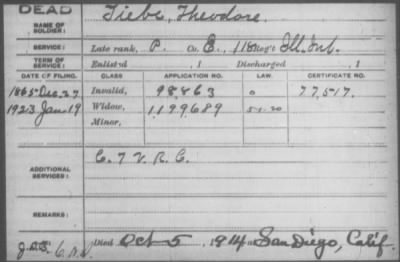 DEAD
NAME OF SOLDIER: Tiebe, Theodore.
SERVICE: Late rank, P. Co. E, 118 Reg't Ill. Inf.
TERM OF SERVICE: Enlisted , 1 Discharged , 1
DATE OF FILING. CLASS APPLICATION NO. LAW. CERTIFICATE NO.
1865 Dec. 27 Invalid, 98863 0 77517.
1923 Jan 19 Widow, 1199689 5-1-20
Minor,
ADDITIONAL SERVICES: C. 7 V. R. C.
REMARKS:
Died Oct 5, 1914 at San Diego, Calif.